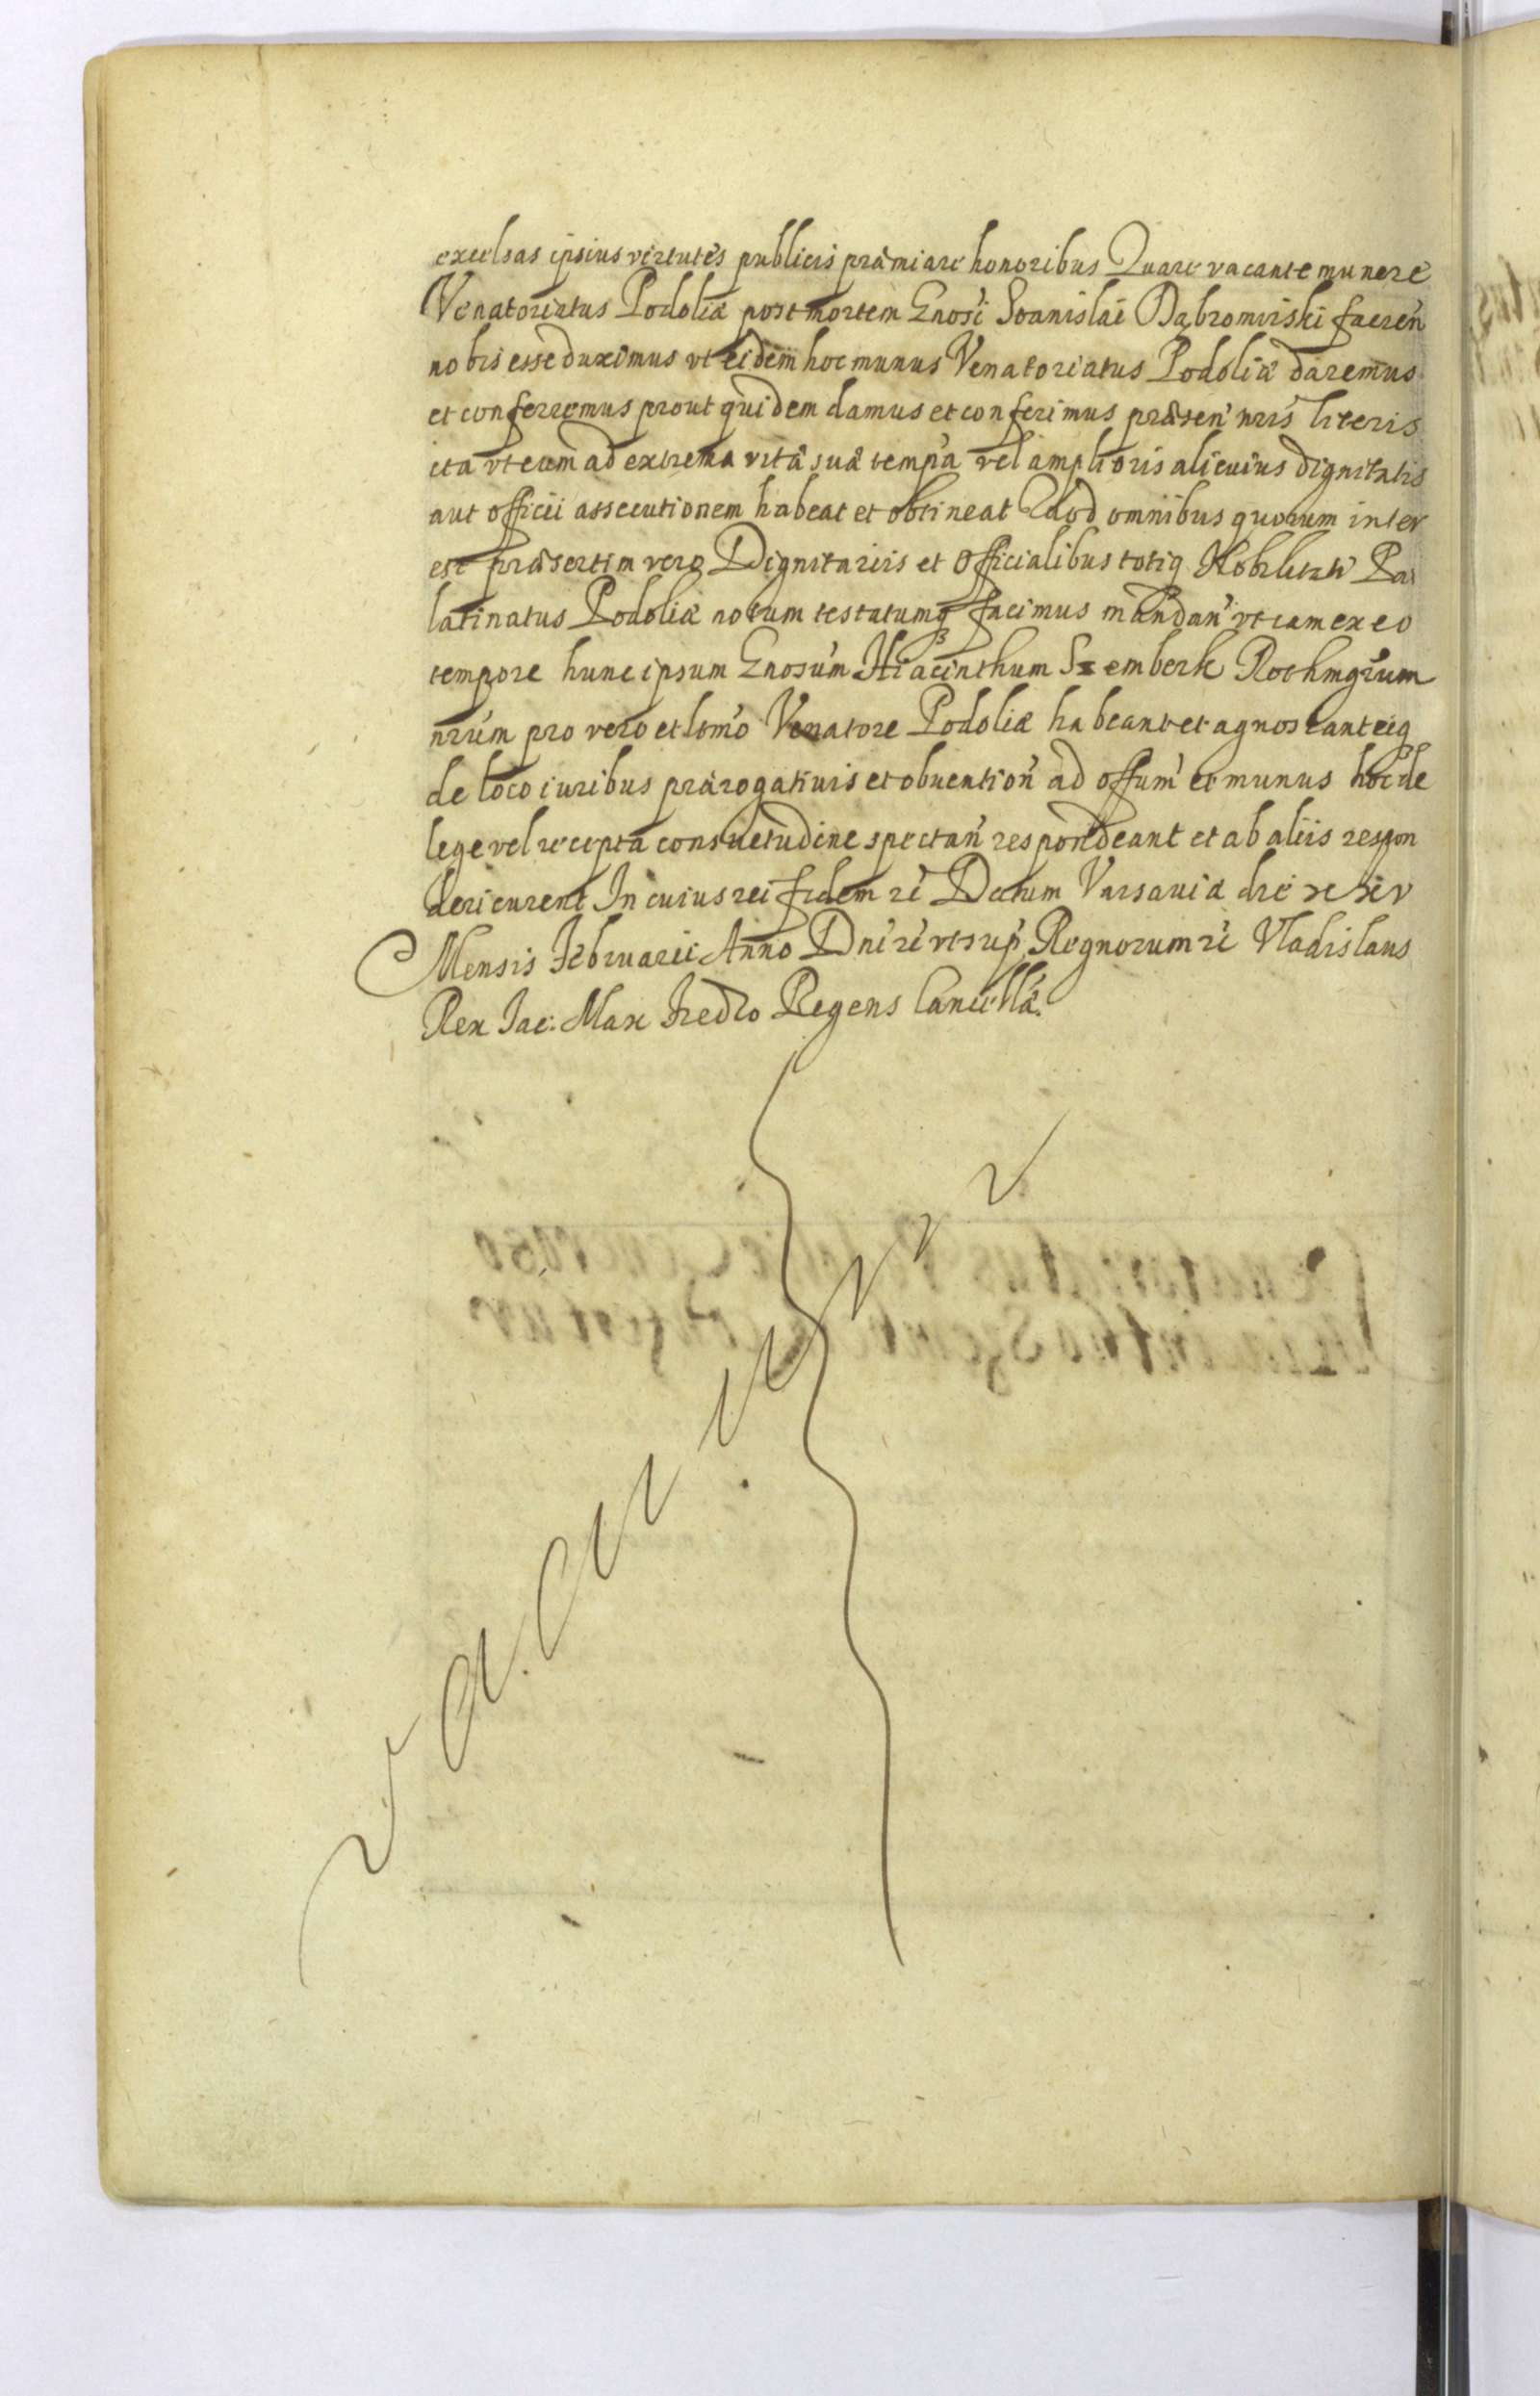 excelsas ipsius virtutes publicis præmiare honoribus Quare vacante munere
Venatoriatus Podoliæ post mortem Gnosi Stanislai Dąbrowiski facien
nobis esse duximus vt eidem hoc munus Venatoriatus Podoliæ daremus
et conferremus prout quidem damus et conferimus præsen nris literis
ita vt eum ad extrema vitæ suæ tempa vel amplioris alicuius dignitatis
aut officii assecutionem habeat et obtineat Quod omnibus quorum inter
est præsertim vero Dignitariis et Officialibus totiq Nobilitati Pa
latinatus Podoliæ notum testatumq facimus mandan vt iam ex eo
tempore hunc ipsum Gnosum Hiacinthum Szemberk Rothmgrum
nrum pro vero et ltmo Venatore Podoliæ habeant et agnoscant eiq
de loco iuribus prærogatiuis et obuention ad offum et munus hoc de
lege vel recepta consuetudine spectan respondeant et ab aliis respon
deri curent In cuius rei fidem Datum Varsauiæ die
Mensis Februarii Anno Dni vt sup Regnorum Vladislaus
Rex Jac: Max Fredro Regens Cancellæ.